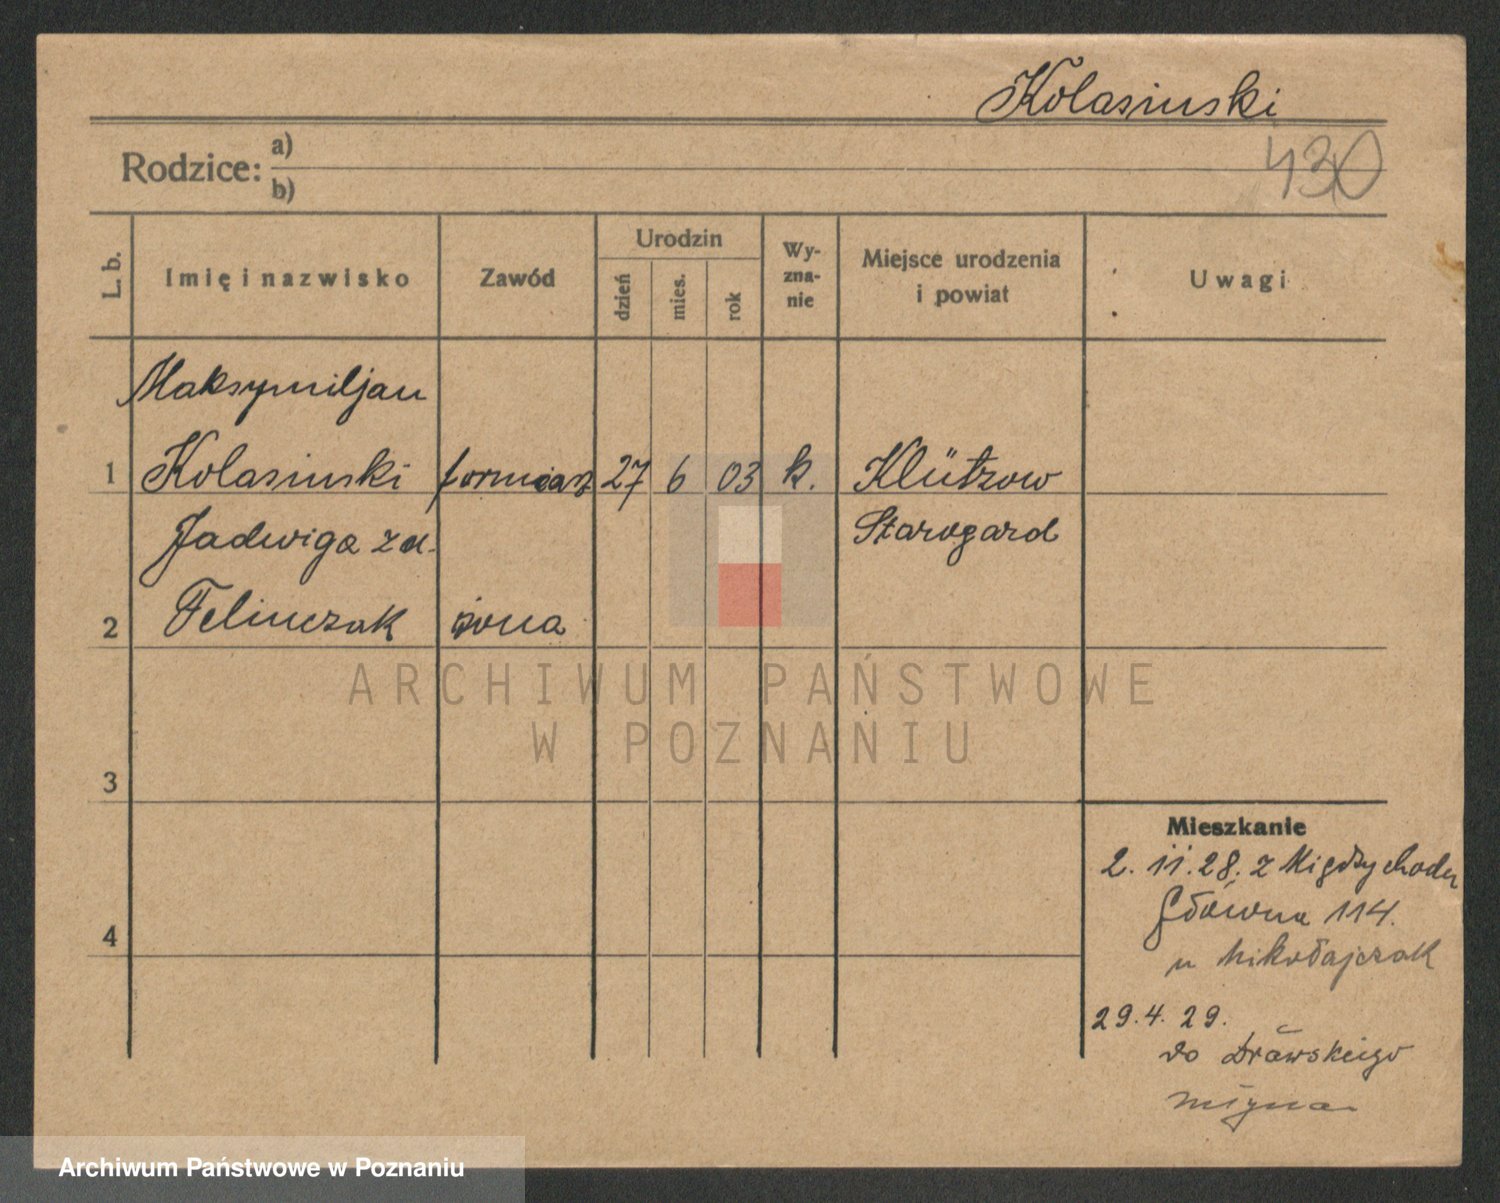 Kolasinski
430
Rodzice: a)
b)
L. b.
Imię i nazwisko
Zawód
Urodzin
dzień
mies.
rok
Wy-
zna-
nie
Miejsce urodzenia
i powiat
Uwagi
Maksymiljan
1 Kolasinski forniarz 27 6 03 k. Klützow
Jadwiga zd. Starogard
2 Felinczak żona
3
4
Mieszkanie
2. 11. 28. z Międzychodu
Główna 114.
u Mikołajczak
29. 4. 29.
do Drawskiego
młyna
ARCHIWUM PAŃSTWOWE
W POZNANIU
Archiwum Państwowe w Poznaniu